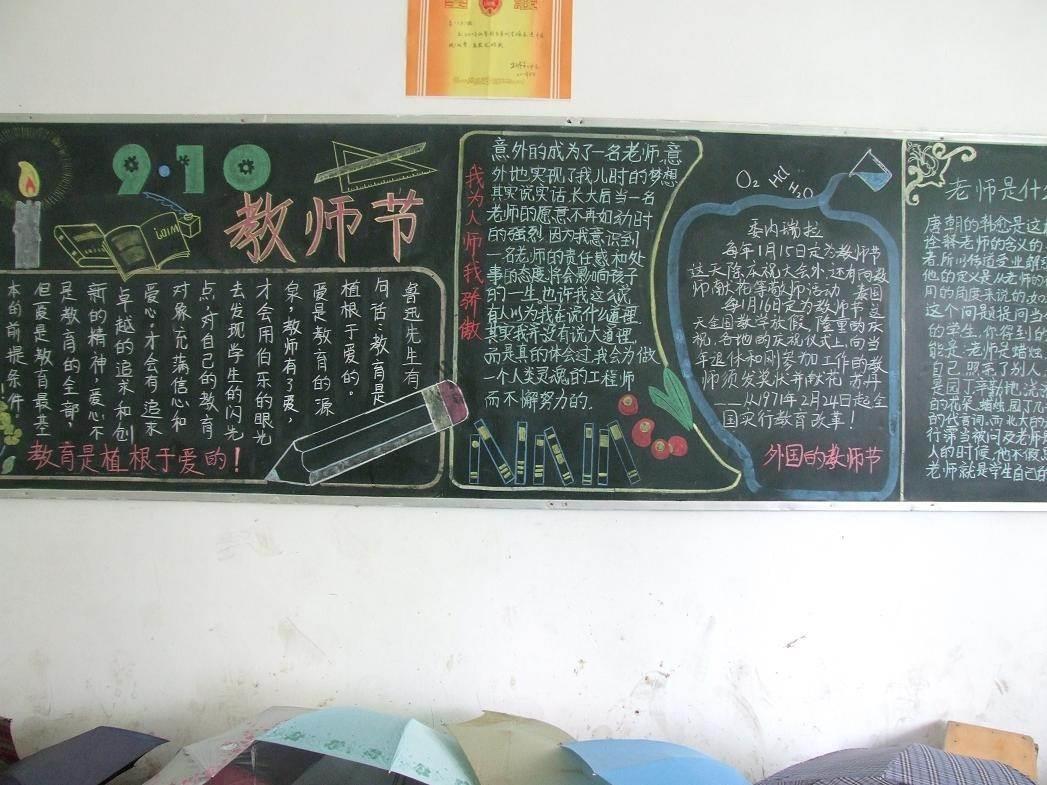 9·10
教师节
鲁迅先生有
句话:教育是
植根于爱的。
爱是教育的源
泉,教师有了爱,
才会用伯乐的眼光
去发现学生的闪光
点,对自己的教育
对象充满信心和
爱心,才会有追求
卓越的追求和创
新的精神,爱心不
是教育的全部,
但爱是教育最基
本的前提条件
教育是植根于爱的!
我为人师我骄傲
意外的成为了一名老师,意
外地实现了我儿时的梦想
其实说实话,长大后当一名
老师的愿意不再如幼时
的强烈.因为我意识到
一名老师的责任感和处
事的态度将会影响孩子
的一生.也许我这么说,
有人以为我在说什么道理,
其实我并没有说大道理,
而是真的体会过,我会为做
一个人类灵魂的工程师
而不懈努力的.
O₂ HCl H₂O
委内瑞拉
每年1月15日定为教师节
这天除庆祝大会外,还有向教
师献花等敬师活动 泰国
每1月16日定为教师节这
天全国教学放假,隆重的庆
祝,各地的庆祝仪式上,向当
年退休和刚参加工作的教
师颁发奖状并献花 苏丹
从1971年2月24日起全
国实行教育改革!
外国的教师节
老师是什
唐朝的韩愈是这
诠释老师的含义的.
者,所以传道受业解
他的定义是从老师的
用的角度来说的.如
这个问题提问当
的学生,你得到的
能是:老师是蜡烛,
自己.照亮了别人.
是园丁辛勤地浇
的花朵.蜡烛.园丁几
的代名词.而北大的
行第当被问及老师是
人的时候,他不假思
老师就是学生自己的